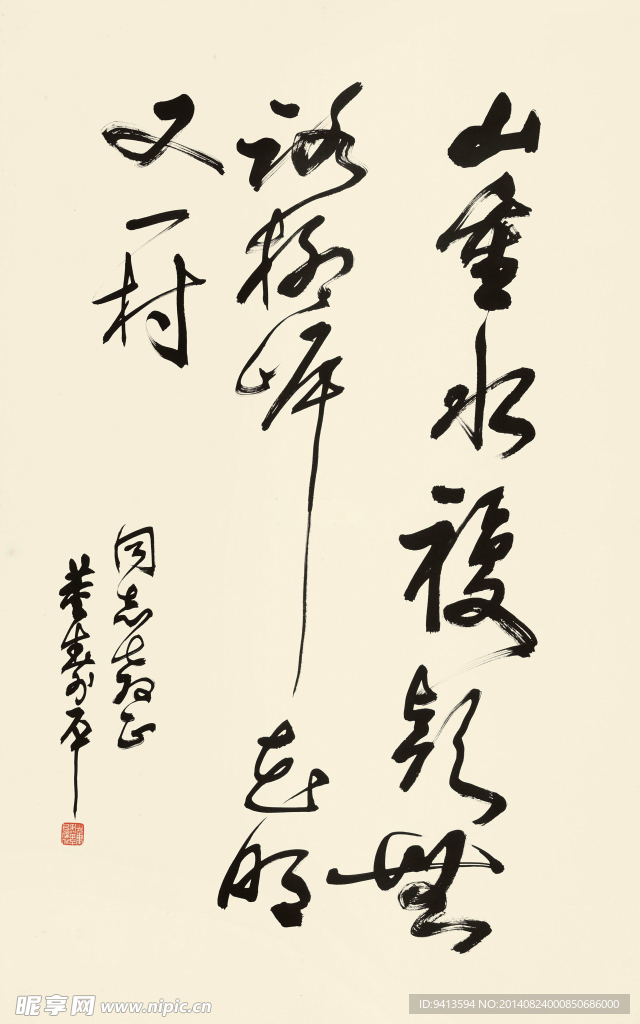 山重水複疑無
路柳岸花明
又一村
同志教正
董壽平
昵享网 www.nipic.cn
ID:9413594 NO:20140824000850686000